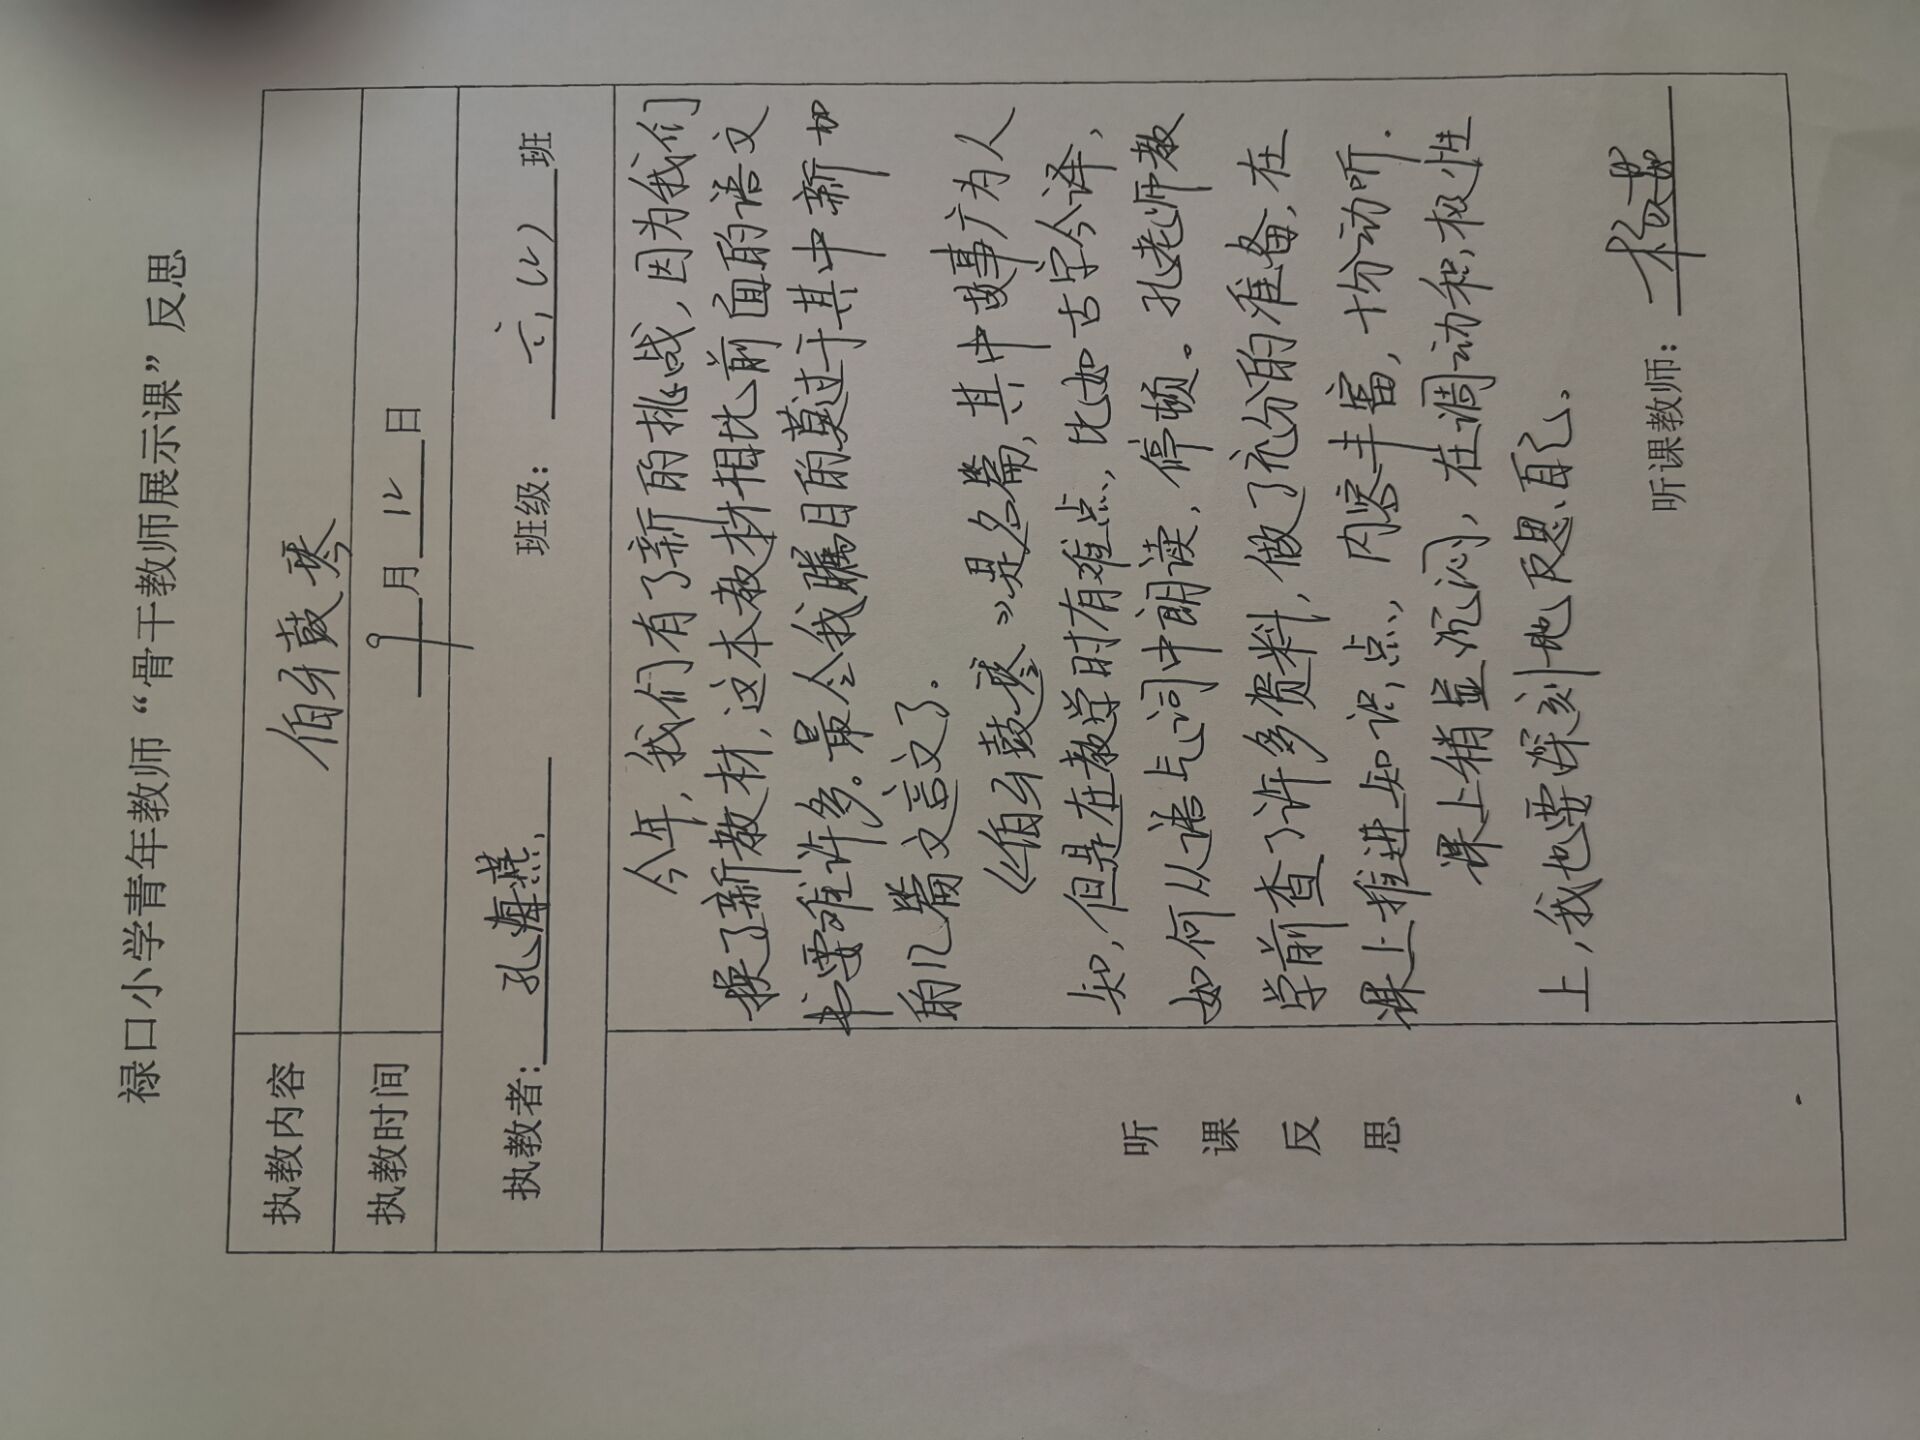 禄口小学青年教师“骨干教师展示课”反思
执教内容 伯牙鼓琴
执教时间 9月12日
执教者：孔海燕 班级：六（2）班
听课反思
今年，我们有了新的挑战，因为我们
换了新教材，这本教材相比前面的语文
书要难许多。最令我瞩目的莫过于其中新加
的几篇文言文了。
《伯牙鼓琴》是名篇，其中故事广为人
知，但是在教学时有难点，比如古字今译，
如何从语与词中朗读，停顿。孔老师教
学前查了许多资料，做了充分的准备，在
课上推进知识点，内容丰富，十份动听.
课上稍显沉闷，在调动积极性
上，我也要深刻地反思自己。
听课教师：